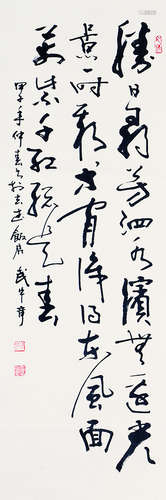 勝日尋芳泗水濱無邊光
景一時新等閒識得東風面
萬紫千紅總是春
甲子年仲春 飯店 武中奇